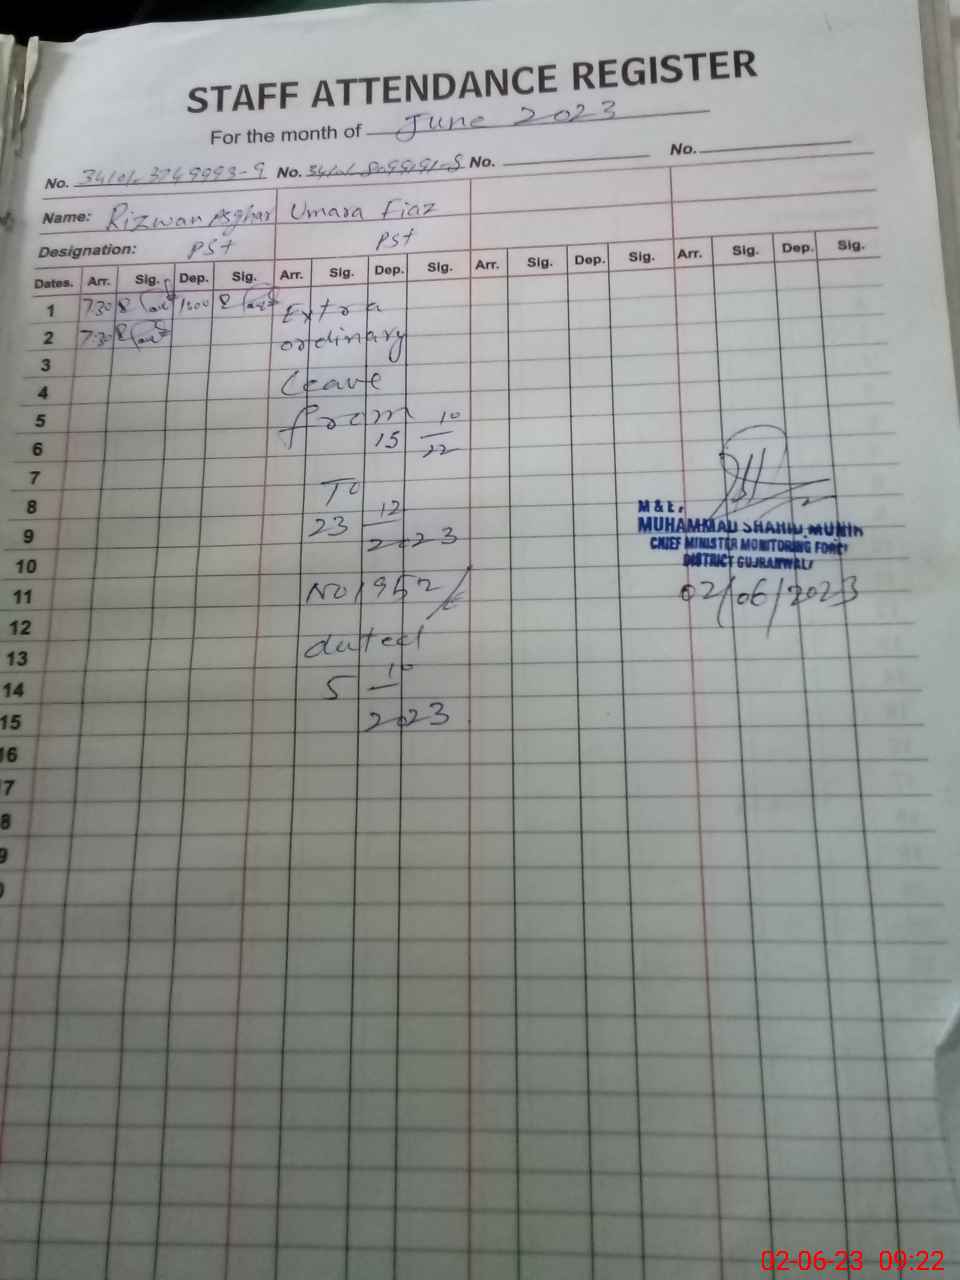 STAFF ATTENDANCE REGISTER
For the month of June 2023
No. No. No. No.
Name: Rizwan Asghar Umara Fiaz
Designation: PSt PSt
Dates. Arr. Sig. Dep. Sig. Arr. Sig. Dep. Sig. Arr. Sig. Dep. Sig. Arr. Sig. Dep. Sig.
1 730 1200 Extra
2 7:30 ordinary
3
4 Leave
5 from 10
6 15 22
7
8 To 12
9 23 2023
10
11 No 1952/
12
13 dated
14 5 10
15 2023
16
7
8
9
0
M & E,
MUHAMMAD SHAHID MUNIR
CHIEF MINISTER MONITORING FORCE
DISTRICT GUJRANWALA
02/06/2023
02-06-23 09:22